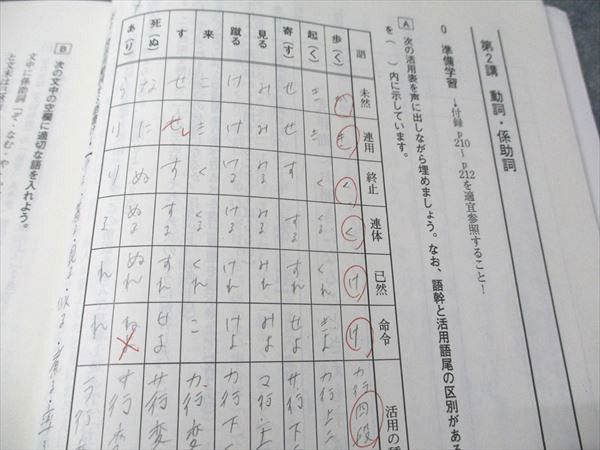 第2講 動詞・係助詞
0 準備学習 →付録p210~p212を適宜参照すること!
A 次の活用表を声に出しながら埋めましょう。なお、語幹と活用語尾の区別がある
を( )内に示しています。
語 未然 連用 終止 連体 已然 命令 活用の種
歩(く) か き く く け け カ行四段
起(く) き き く くる くれ きよ カ行上二
寄(す) せ せ す する すれ せよ サ行下二
見る み み みる みる みれ みよ マ行上一
蹴る け け ける ける けれ けよ カ行下
来 こ き く くる くれ こ カ行変
す せ し す する すれ せよ サ行変
死(ぬ) な に ぬ ぬる ぬれ ね ナ行変
あ(り) ら り り る れ れ ラ行変
B 次の文中の空欄に適切な語を入れよう。
文中に係助詞「ぞ・なむ・や・
と文末は